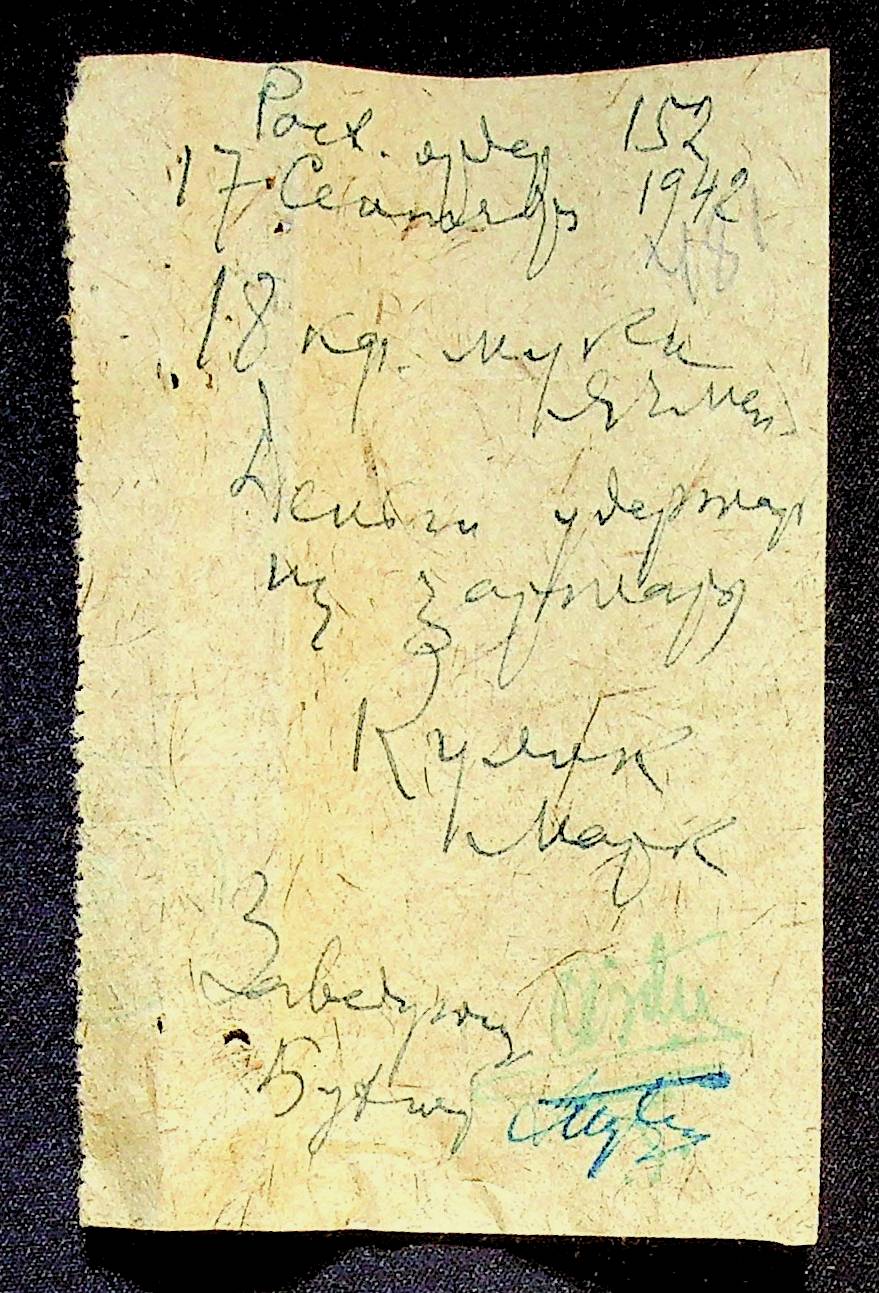 Расх. ордер 152
17 Сентября 1942
18 кг. муки
Ячмен
Деньги удержан
из зарплаты
Кулик
Марк
Заведующ